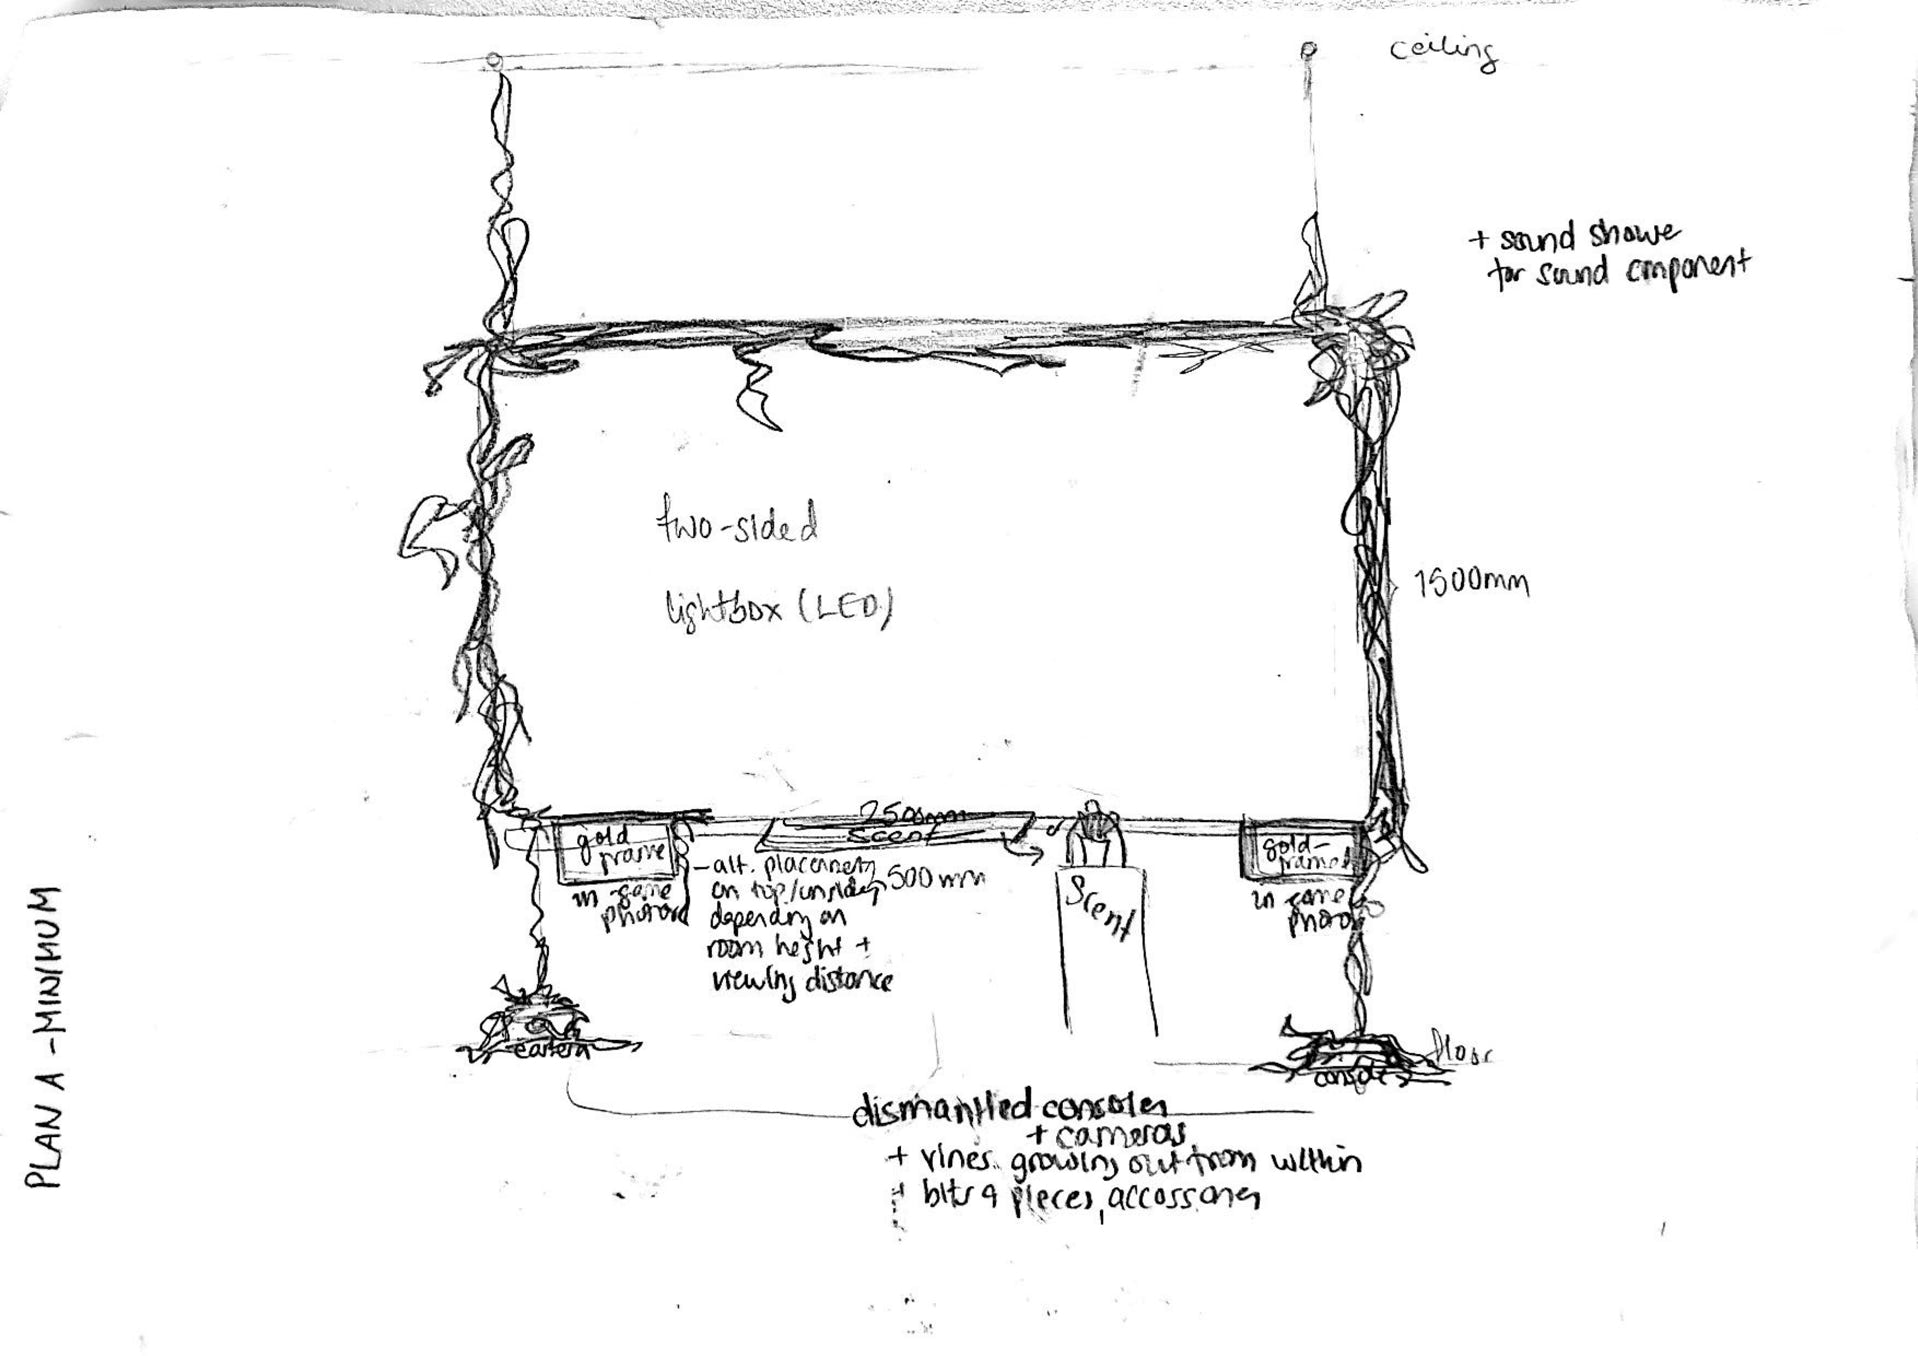 ceiling
+ sound showe
for sound component
two-sided
lightbox (LED)
1500mm
2500mm
scent
gold
frame
in-game
photos
- alt. placement
on top/
depending on
room height +
viewing distance
500mm
Scent
gold-
framed
in game
photo
camera
floor
consoles
dismantled consoles
+ cameras
+ vines growing out from within
+ bits & pieces, accossories
PLAN A - MINIMUM